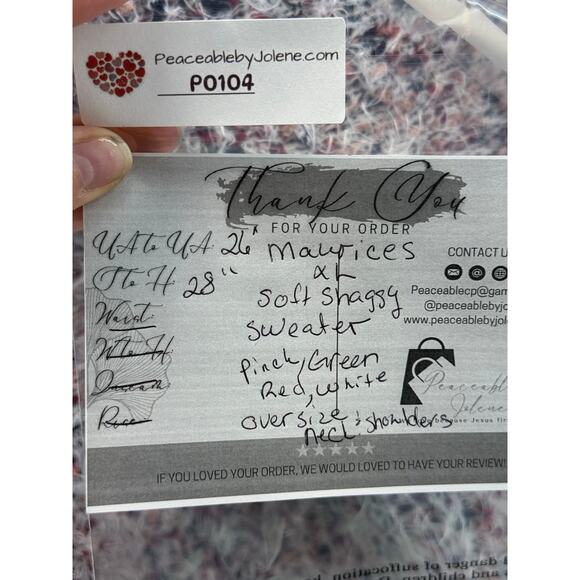 PeaceablebyJolene.com
P0104
Thank You
FOR YOUR ORDER
UA to UA: 26"
S to H: 28"
Waist:
W to H:
Inseam:
Rise:
Maurices
XL
Soft Shaggy
Sweater
Pink, Green
Red, White
oversize neck & shoulders
CONTACT U
Peaceablecp@gma
@peaceablebyjo
www.peaceablebyjolen
Peaceable
Jolene
because Jesus fir
IF YOU LOVED YOUR ORDER, WE WOULD LOVED TO HAVE YOUR REVIEW!
danger of suffocation